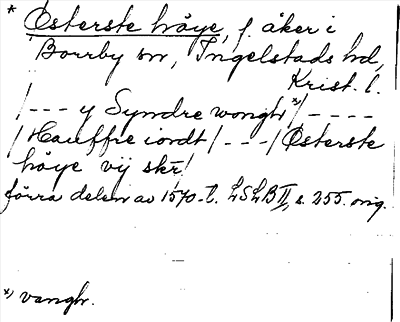 * Østerste höye, f. åker i
Borrby sn, Ingelstads hd,
Krist. l.
/--- y Syndre wonghr *)/ ----
/Hauffre iordt/ --- / Østerste
höye vij skr/
förra delen av 1570-t. LSLB II, s. 255. orig.
*) vanghr.